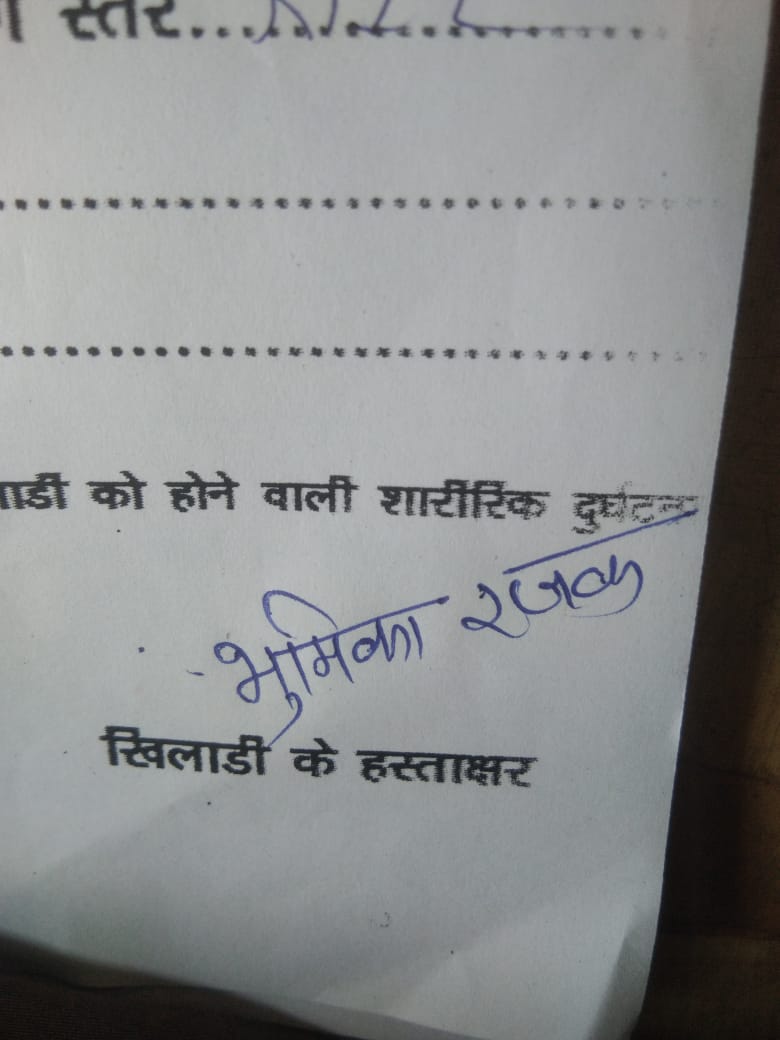 स्तर............NIL............
............................................
............................................
को होने वाली शारीरिक दुर्घटना
भुमिका रजक
खिलाडी के हस्ताक्षर